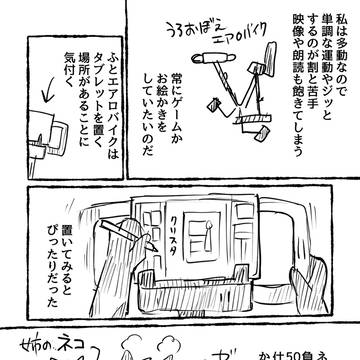 私は多動なので
単調な運動やジッと
するのが割と苦手
映像や朗読も飽きてしまう
うろおぼえ
エアロバイク
常にゲームか
お絵かきを
していたいのだ
ふとエアロバイクは
タブレットを置く
場所があることに
気付く
クリスタ
置いてみると
ぴったりだった
姉の、ネコ